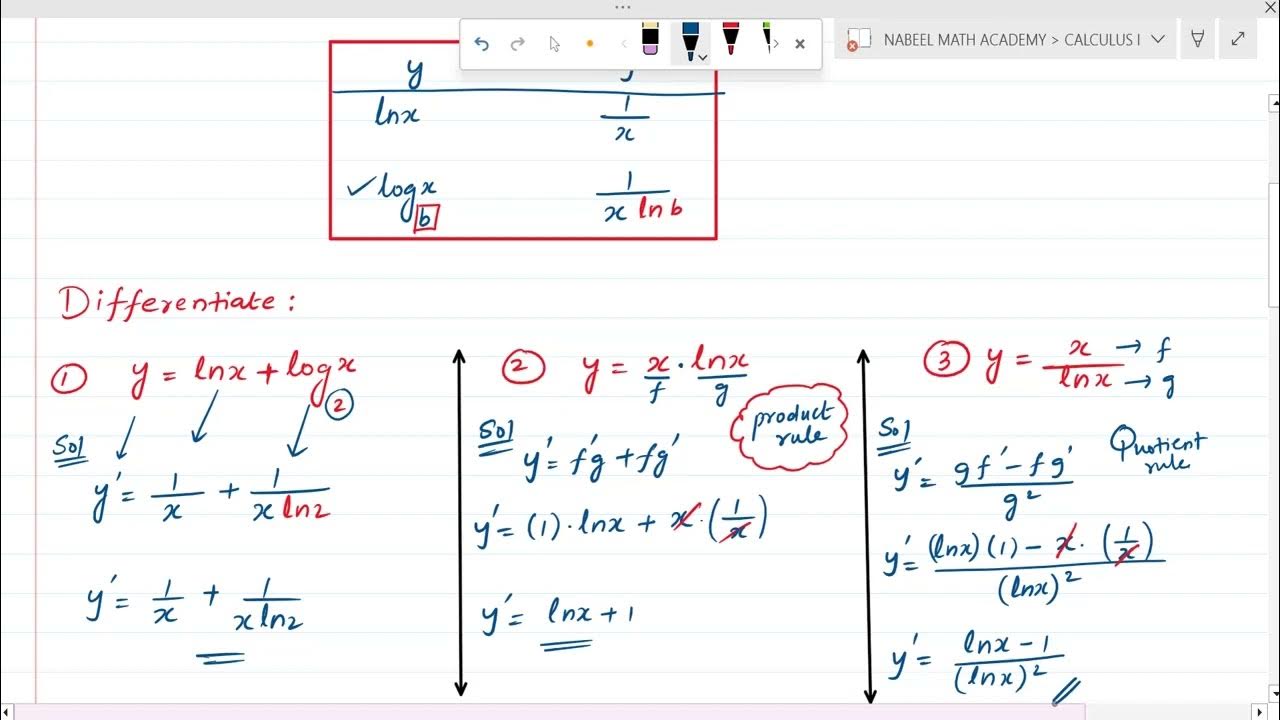 NABEEL MATH ACADEMY > CALCULUS I
y
lnx 1/x
✓ log_b x 1/(x ln b)
Differentiate :
① y = lnx + log_② x
Sol
y' = 1/x + 1/(x ln2)
y' = 1/x + 1/(x ln2)
② y = x · lnx
f g
product rule
Sol
y' = f'g + fg'
y' = (1) · lnx + x · (1/x)
y' = lnx + 1
③ y = x/lnx → f → g
Sol
Quotient rule
y' = (gf' - fg')/g²
y' = ((lnx)(1) - x · (1/x))/(lnx)²
y' = (lnx - 1)/(lnx)²